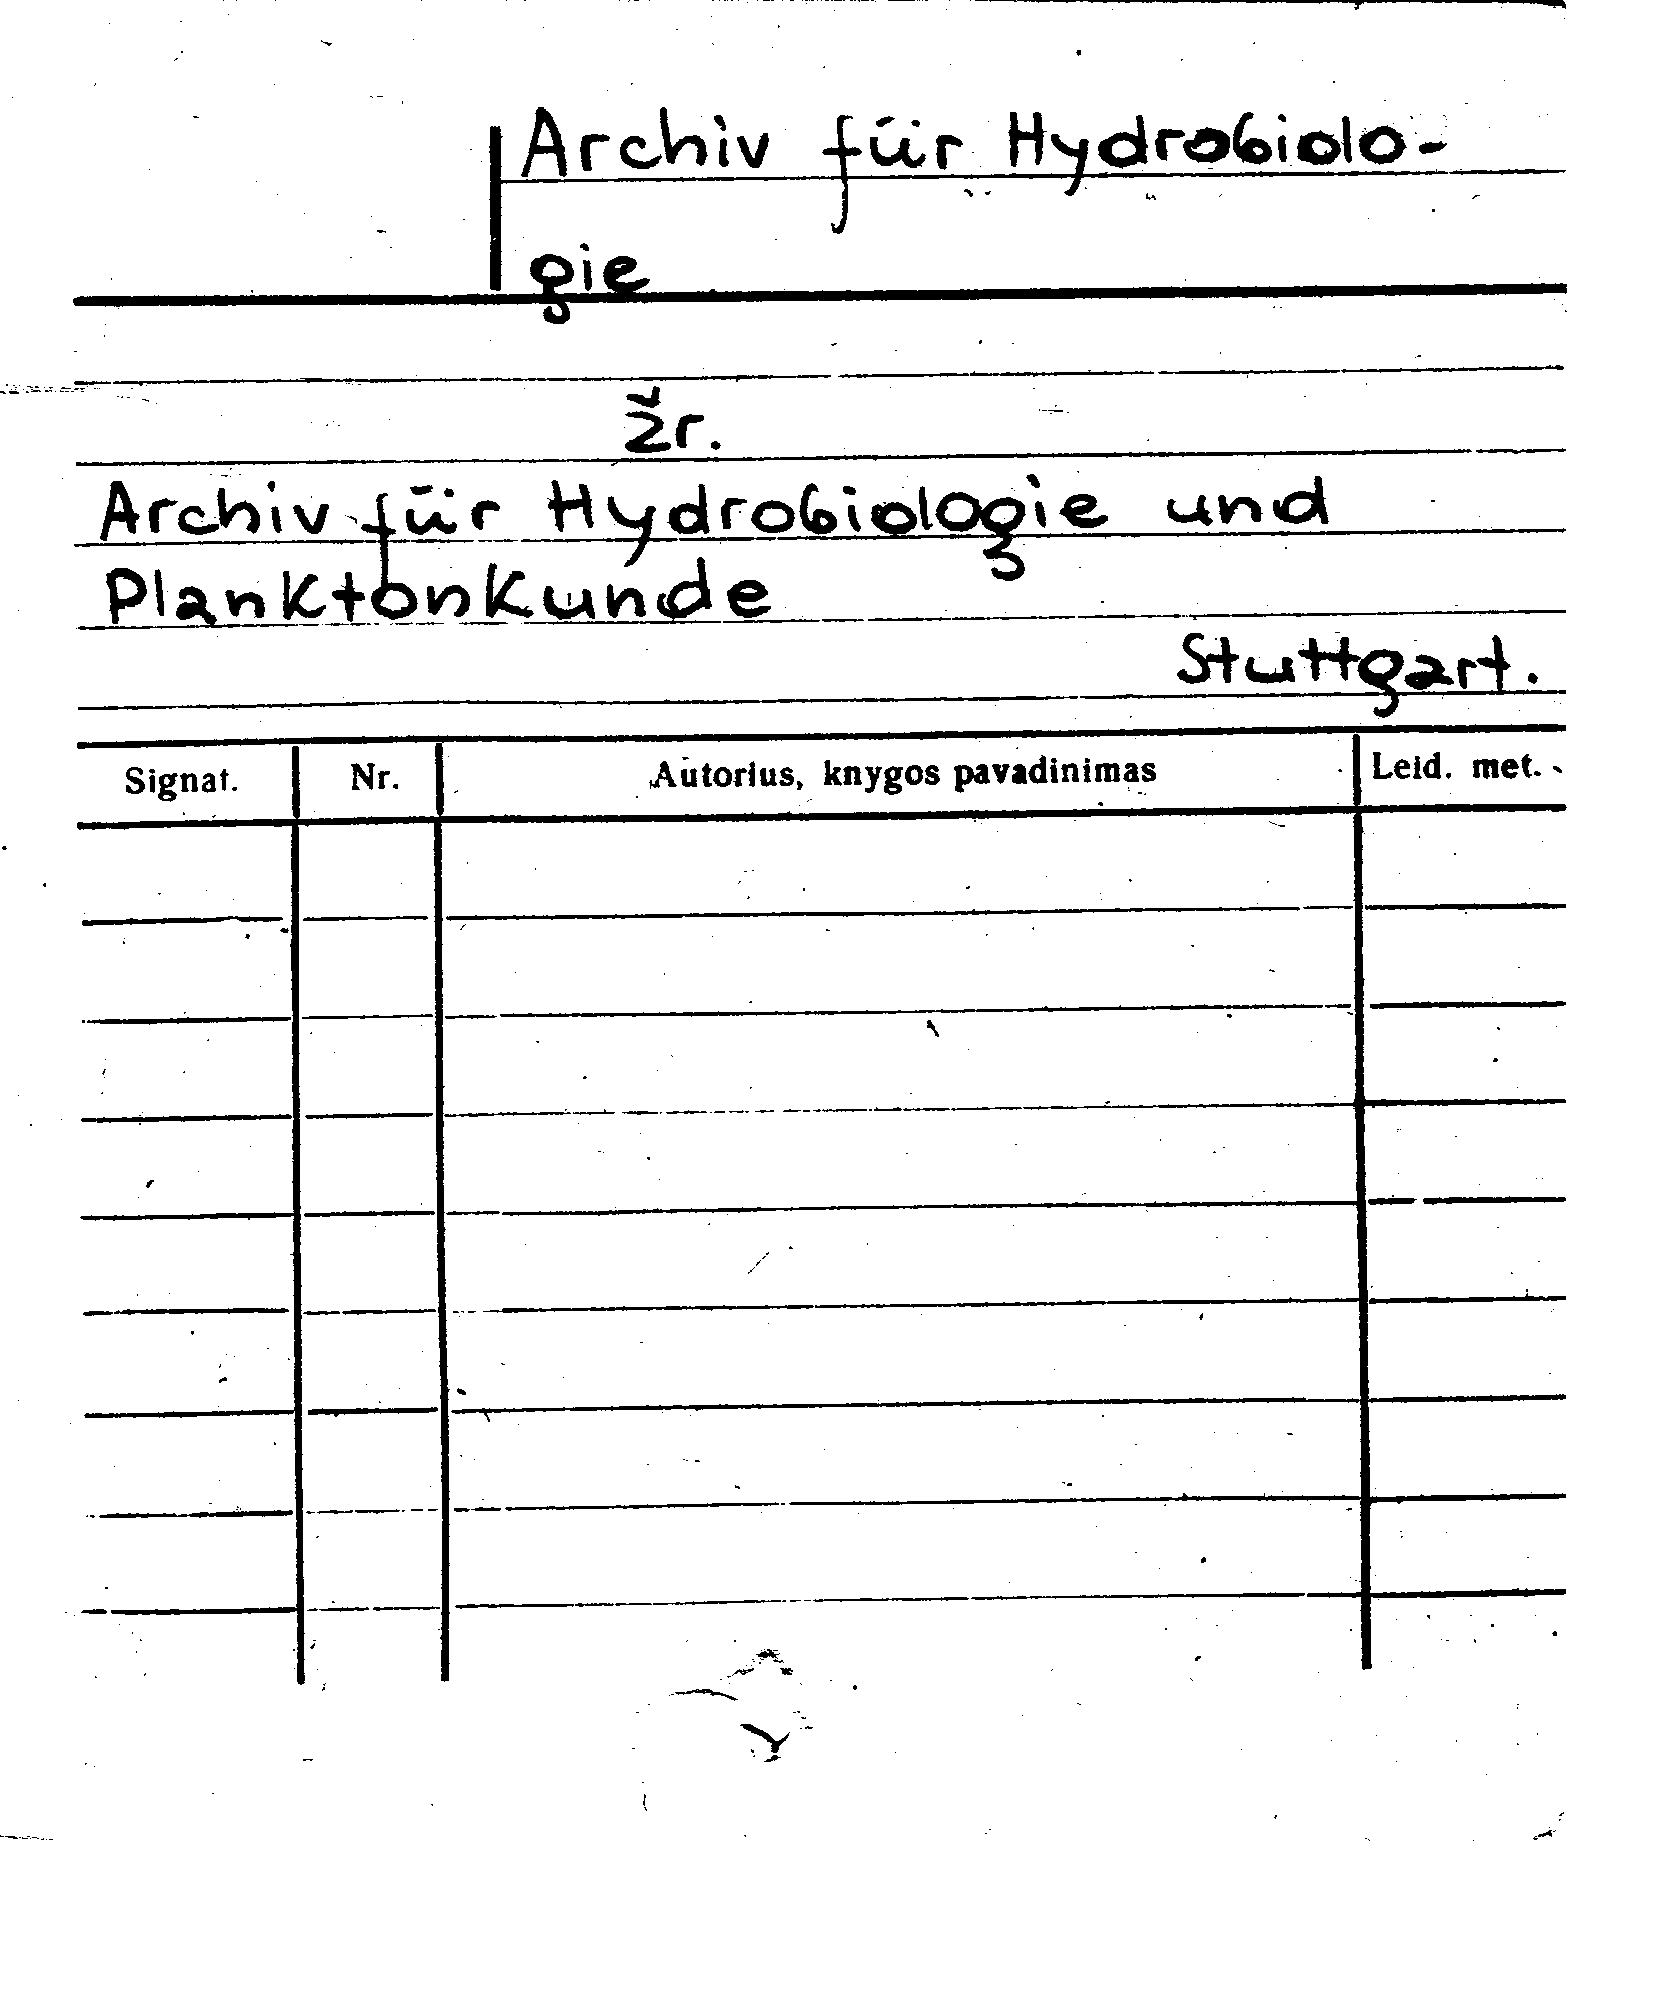 Archiv für Hydrobiolo-
gie
žr.
Archiv für Hydrobiologie und
Planktonkunde
Stuttgart.
Signat. Nr. Autorius, knygos pavadinimas Leid. met.